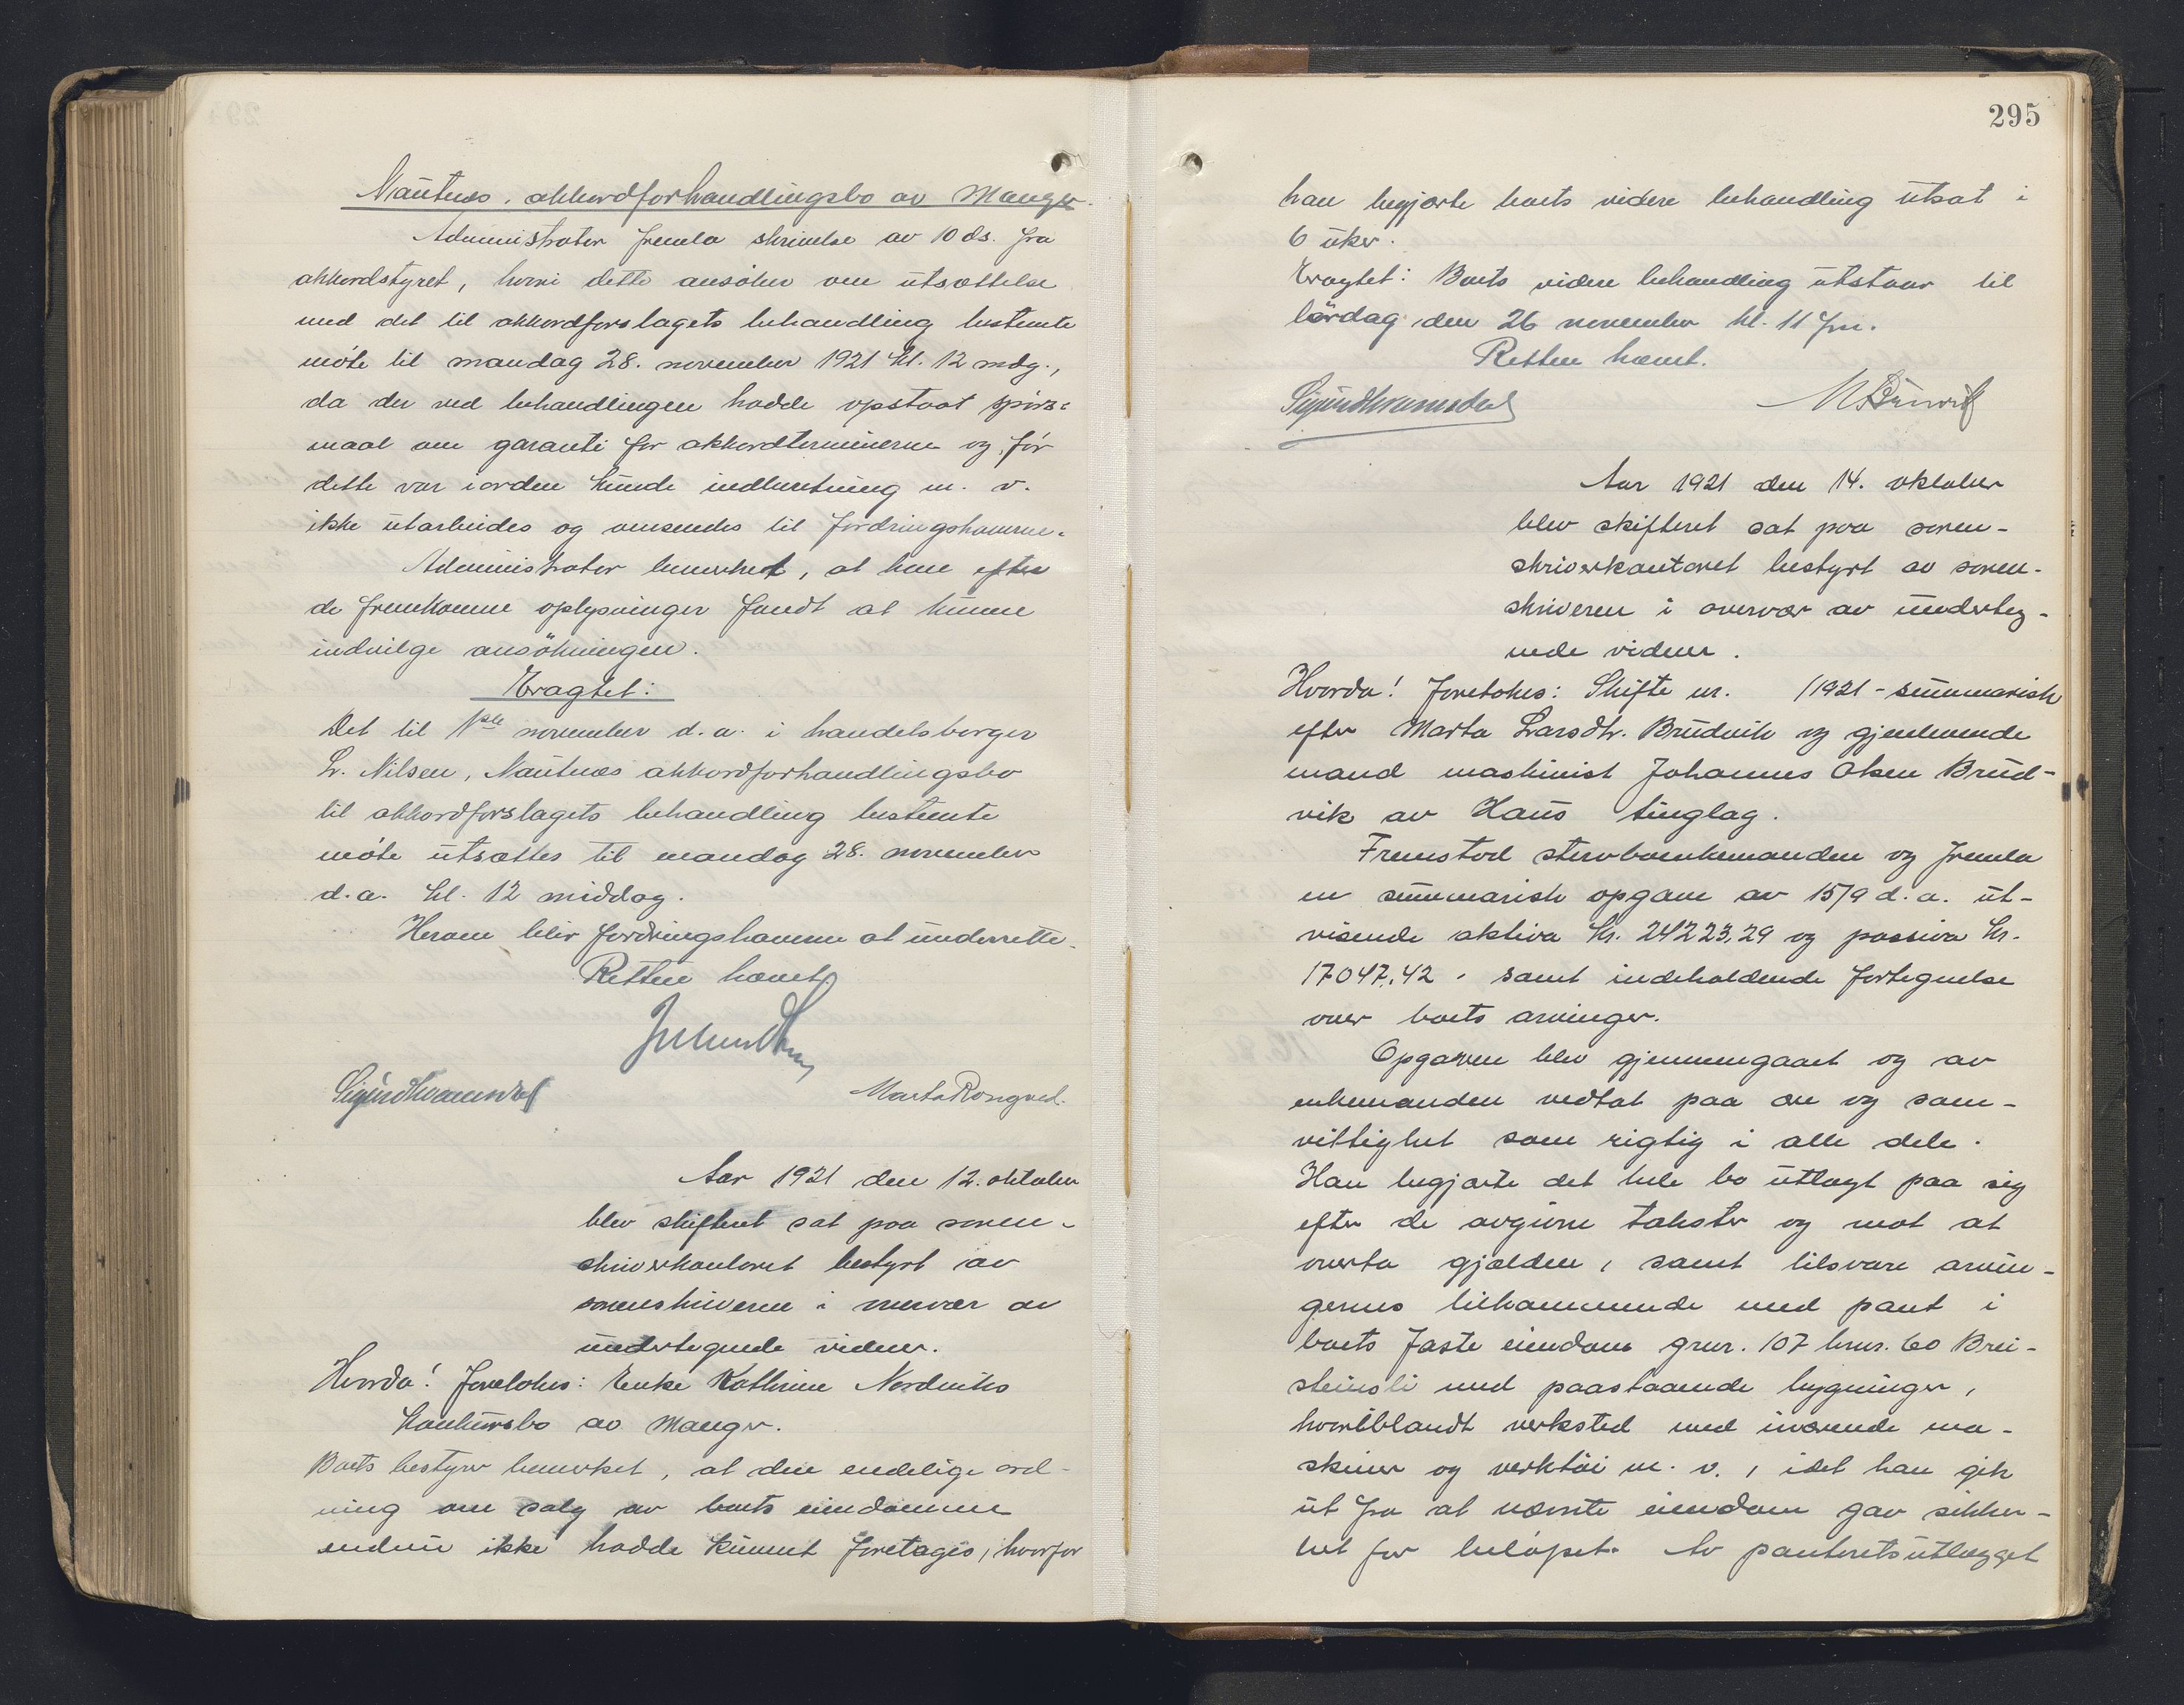 Nautnes, akkordforhandlingsbo av Manger.
Administrator fremla skrivelse av 10 ds. fra
akkordstyret, hvori dette ansøker om utsættelse
med det til akkordforslagets behandling bestemte
møte til mandag 28. november 1921 kl. 12 mdg.,
da der ved behandlingen hadde opstaat spørs-
maal om garanti for akkordterminerne og før
dette var iorden kunde indberetning m. v.
ikke utarbeides og omsendes til fordringshaverne.
Administrator bemerket, at han efter
de fremkomne oplysninger fandt at kunne
indvilge ansökningen.
Eragtet:
Det til 1ste november d.a. i handelsborger
L. Nilsen, Nautnes akkordforhandlingsbo
til akkordforslagets behandling bestemte
møte utsættes til mandag 28. november
d.a. kl. 12 middag.
Herom blir fordringshaverne at underrette.
Retten hævet
Sigurd Kvamsdal
Marta Rongved.
Aar 1921 den 12. oktober
blev skifteret sat paa soren-
skriverkontoret bestyrt av
sorenskriveren i overvær av
undertegnede vidner.
Hvorda! Foretokes: Enke Kathrine Nordviks
konkursbo av Manger.
Boets bestyrer bemerket, at den endelige ord-
ning om salg av boets eiendomme
endnu ikke hadde kunnet foretages, hvorfor
295
han begjærte boets videre behandling utsat i
6 uker.
Eragtet: Boets videre behandling utstaar til
lördag den 26 november kl. 11 fm.
Retten hævet.
Sigurd Kvamsdal
Aar 1921 den 14. oktober
blev skifteret sat paa soren-
skriverkontoret bestyrt av soren-
skriveren i overvær av underteg-
nede vidner.
Hvorda! Foretokes: Skifte nr. /1921 - summarisk
efter Marta Larsdtr. Brudvik og gjenlevende
mand maskinist Johannes Olsen Brud-
vik av Haus tinglag.
Fremstod stervboenkemanden og fremla
en summarisk opgave av 15/9 d.a. ut-
visende aktiva kr. 24223,29 og passiva kr.
17047,42, samt indeholdende fortegnelse
over boets arvinger.
Opgaven blev gjennemgaaet og av
enkemanden vedtat paa ære og sam-
vittighet som rigtig i alle dele.
Han begjærte det hele bo utlagt paa sig
efter de avgivne takster og mot at
overta gjælden, samt tilsvare arvin-
gernes tilkommende med pant i
boets faste eiendom gnr. 107 bnr. 60 Brei-
steinsli med paastaaende bygninger,
hvoriblandt verksted med iværende ma-
skiner og verktöi m. v., idet han gik
ut fra at nævnte eiendom gav sikker-
het for belöpet. Av panteretsutlægget